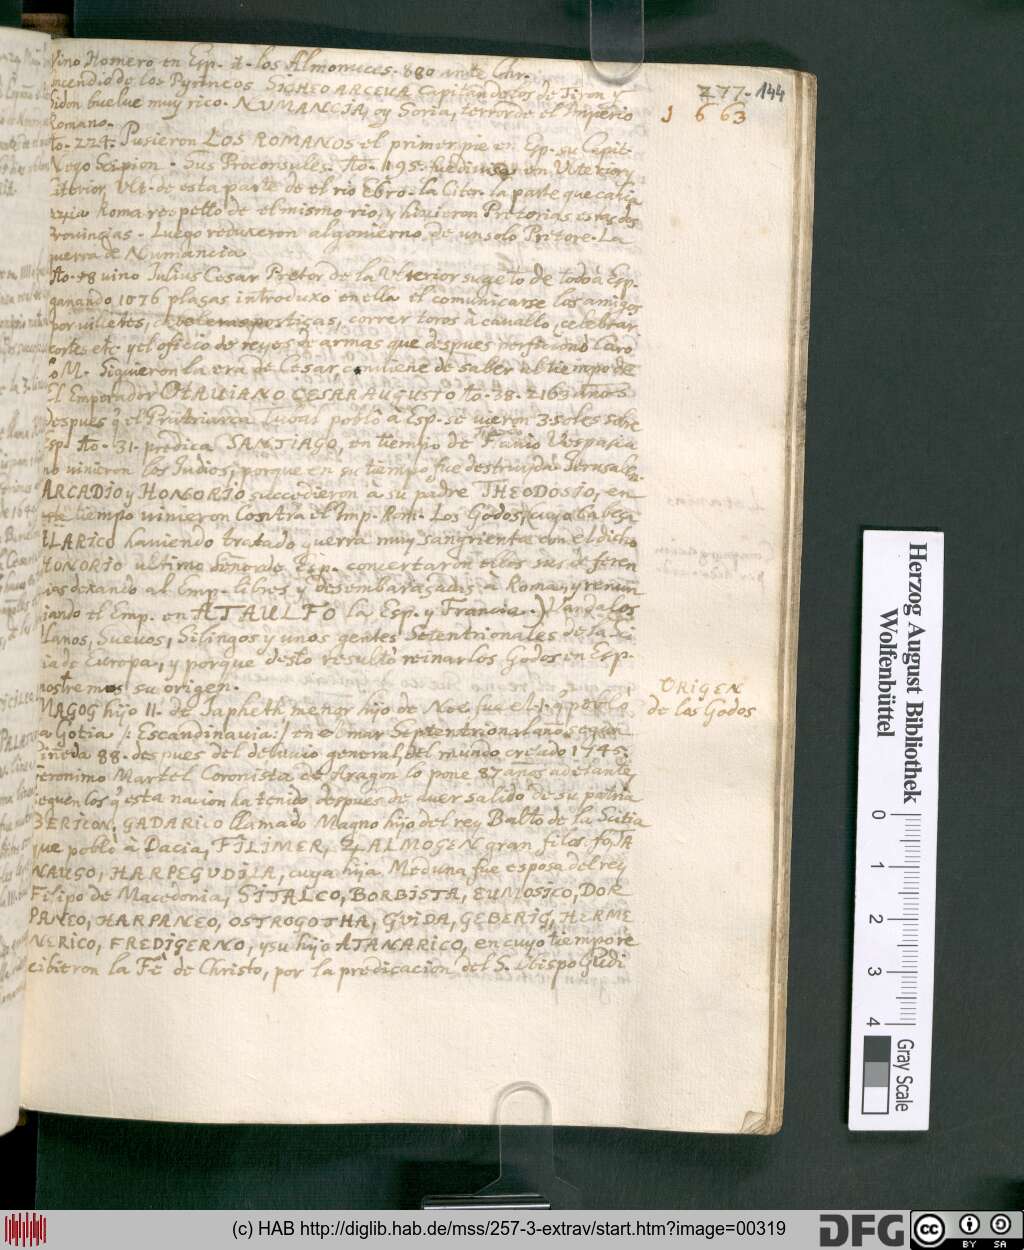 Vino Homero en Esp. d. los Almonuces. 880 ante Chr.
Incendio de los Pyrineos SICHEO ARCEVA Capitan de los de Tiron y
Sidon buelue muy rico. NUMANCIA, oy Soria, terror de el Imperio
Romano.
Ao. 224. Pusieron LOS ROMANOS el primer pie en Esp. su Capit.
Neyo Scipion. Sus Proconsules. Ao. 195. fue diuisa en Vlterior y
Citerior, Vlt. de esta parte de el rio Ebro: la Citer. la parte que cahia
azia Roma respetto de el mismo rio, y hizieron Pretorias estas dos
Prouincias. Luego reduxeron al gouierno de un solo Pretore. La
guerra de Numancia.
Ao. 48 vino Julius Cesar Pretor de la Vlterior sugeto de todo à Esp.
ganando 1076 plasas introduxo en ella el comunicarse los amigos
por villetes, correr toros à cauallo, celebrar
cortes etc. y el oficio de reyes de armas que despues perficionò Caro
lo M. Siguieron la era de Cesar conuiene de saber al tiempo de
El Emperador OTAUIANO CESAR AUGUSTO Ao. 38. 2163 años
despues q̃ el Patriarca Tubal poblò à Esp. se vieron 3. soles sobre
Esp. Ao. 31. predica SANTIAGO, en tiempo de Flauio Vespasia
no vinieron los Judios, porque en su tiempo fue destruyda Jerusalen.
ARCADIO y HONORIO succedieron à su padre THEODOSIO, en
tiempo vinieron Contra el Imp. Rom. Los Godos, cuya cabesa
ALARICO hauiendo tratado guerra muy sangrienta con el dicho
HONORIO ultimo Señor de Esp. concertaron ellos sus diferen
cias dexando al Emp. libres y desembarasadas à Roma, y renun
ciando el Emp. en ATAULFO la Esp. y Francia.) Vandalos
Alanos, Sueuos, Silingos y unos gentes Setentrionales de la Si
tia de Europa, y porque desto resultò reinar los Godos en Esp.
mostremos su origen.
MAGOG hijo II. de Japheth menor hijo de Noe fue el 1. q̃ poblò
la Gotia /: Escandinauia :/ en el mar Septentrional años segun
Pineda 88. despues del deluuio general, del mundo creado 1745.
Geronimo Martel Coronista de Aragon lo pone 87 años adelante,
seguen los q̃ esta nacion ha tenido despues de auer salido de su patria
BERICON, GADARICO llamado Magno hijo del rey Balto de la Scitia
que poblò à Dacia, FILIMER, ZALMOGEN gran filosofo, TA
NAUSO, HARPEGUDILA, cuya hija Meduna fue esposa del rey
Filipo de Macedonia, SITALCO, BORBISTA, EUMOSICO, DOR
PANEO, HARPANEO, OSTROGOTHA, GUIDA, GEBERIG, HERME
NERICO, FREDIGERNO, y su hijo ATANARICO, en cuyo tiempo re
cibieron la Fè de Christo, por la predicacion del S. Obispo Gudi
277. 144
1663
ORIGEN
de los Godos
Herzog August Bibliothek
Wolfenbüttel
0 1 2 3 4
Gray Scale
(c) HAB http://diglib.hab.de/mss/257-3-extrav/start.htm?image=00319
DFG
cc BY SA